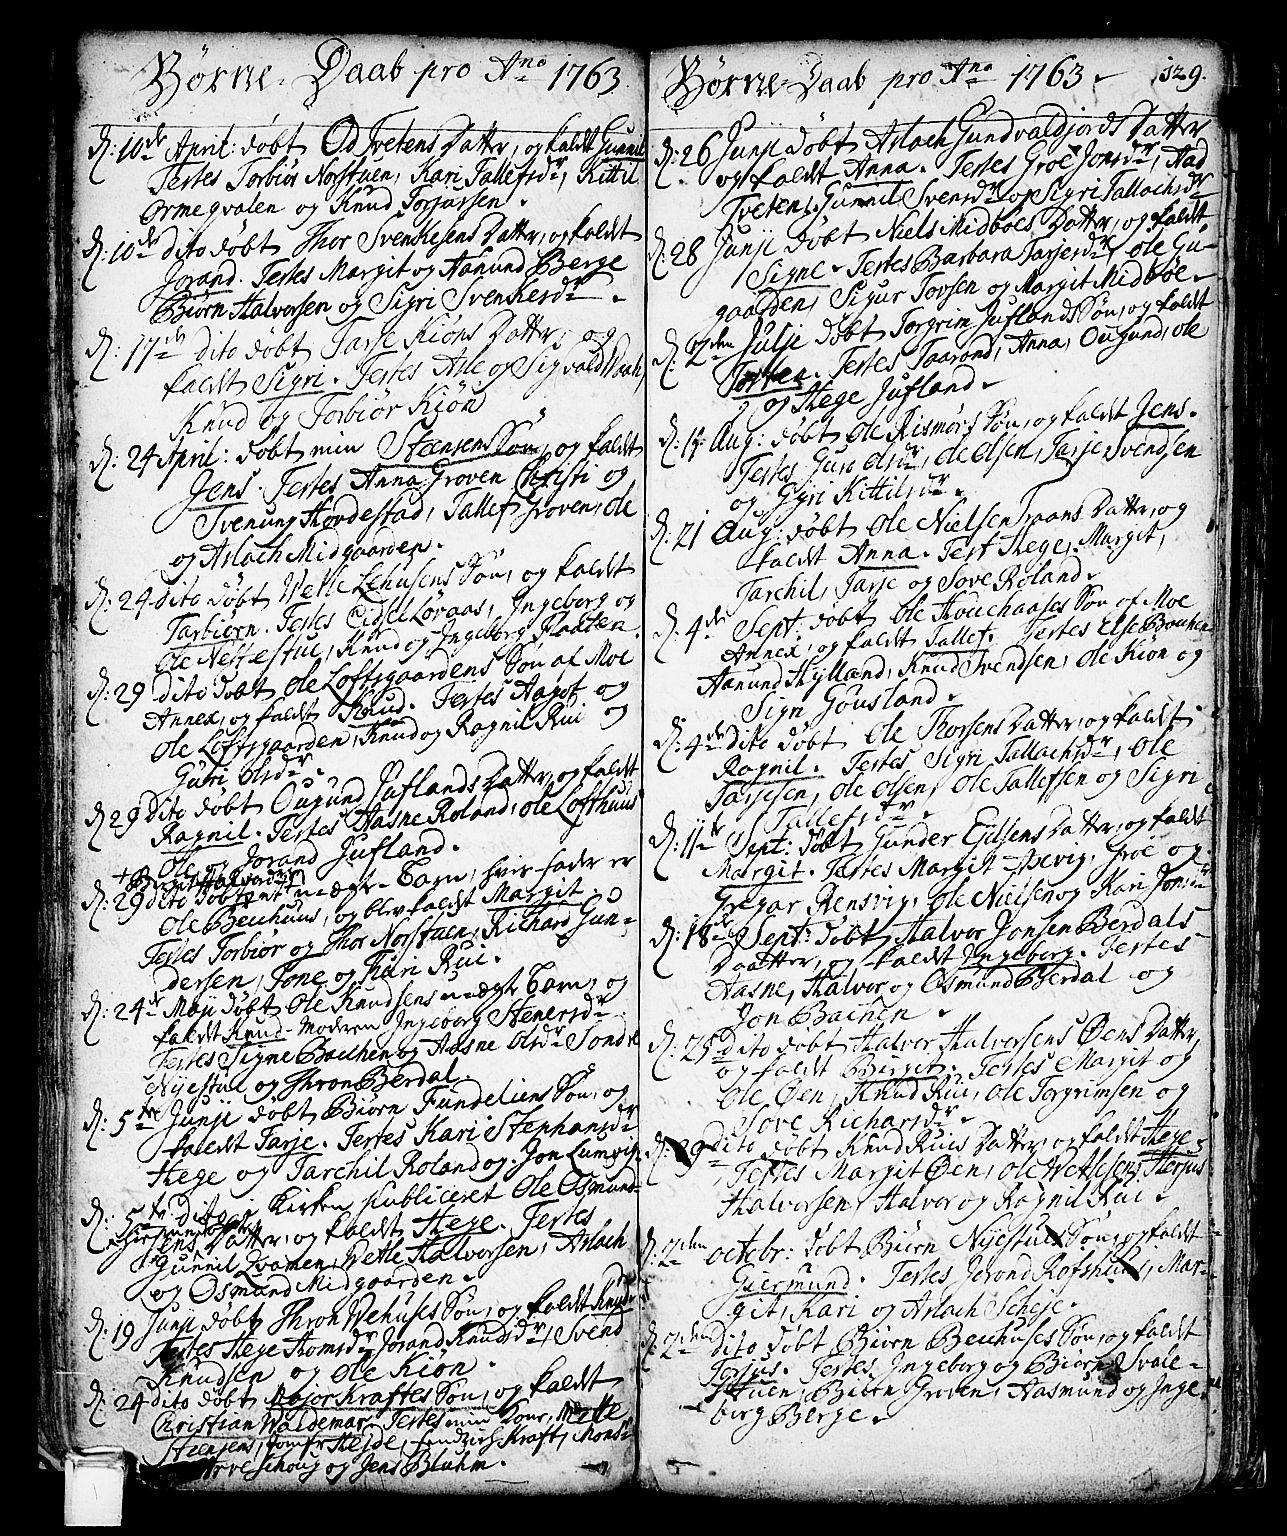 Börne-Daab pro Ano 1763
d: 10de April: döbt Od Tvetens Datter, og kaldt Gunnil
Testes Torbiör Norstuen, Kari Tallefsdr, Kittil
Ormegvalen og Knud Torjussen.
d: 10de dito döbt Thor Svenkesens Datter, og kaldet
Jorand. Testes Margit og Aanund Berge
Biörn Halvorsen og Sigri Svenkesdr.
d: 17de dito döbt Tarje Kiöns Datter, og
kaldt Sigri. Testes Asle og Sigvald
Knud og Torbiör Kiön
d: 24 April: döbt min Steensens Sön, og kaldt
Jens. Testes Anna Groven Christi og
Svenung Hovdestad, Tallef Groven, Ole
og Aslach Midgaarden.
d: 24 dito döbt Vetle Lehusens Sön, og kaldt
Tarbiörn. Testes Eidsel Lövaas, Ingeborg og
Ole Nestestue, Knud og Ingeborg Flaaten.
d: 29 dito döbt Ole Loftsgaardens Sön af Moe
Annex, og kaldt Knud. Testes Aagot og
Ole Loftsgaarden, Knud og Ragnil Rui og
Guri Olsdr.
d: 29 Dito döbt Ougund Juflands Datter, og kaldt
Ragnil. Testes Aasne Roland, Ole Lofthuus
Ole og Jorand Jufland.
+ Birgit Halvorsdr
d: 29 dito döbt et uægte Barn, hvis fader er
Ole Beuhuus, og blev kaldt Margit.
Testes Torbiör og Thor Norstuen, Richard Gun-
dersen, Tone og Guri Rui.
d: 24de Maji döbt Ole Knudsens uægte Barn, og
kaldt Knud. Moderen Ingeborg Stenersdr
Testes Signe Bachen og Aasne Olsdr Sondre
Nyestul og Thron Berdal.
d: 5te Junji döbt Biörn Fundeliens Sön, og
kaldt Tarje. Testes Kari Stephansdr
Hege og Tarchil Roland og Jon Lumvig.
d: 5te dito i Kirken publiceret Ole Osmund-
sens Datter, og kaldt Hege. Testes
Gunnil Qvamen, Vetle Halvorsen, Aslach
og Osmund Midgaarden.
d: 19 Junji döbt Thron Vehuses Sön, og kaldt Knud
Testes Hege Thomsdr Jorand Knudsdr, Svend
Knudsen og Ole Kiön.
d: 24 dito döbt Major Kraftes Sön, og kaldt
Christian Waldemar. Testes min Kone, Mette
Steensens, Jomfr Heide, Fendrich Kraft, Mons:
Schoug og Jens Bluhm.
Börne-Daab pro Ano 1763. 129.
d: 26 Junji döbt Aslach Gundvaldjords Datter
og kaldt Anna. Testes Groe Jonsdr, Aad
Tveten, Gunnil Svensdr og Sigri Tallachsdr
d: 28 Junji döbt Niels Midböes Datter, og kaldt
Signe. Testes Barbara Tarjesdr, Ole Gu-
gaarden, Sigur Tovsen og Margit Midböe.
d: 2den Julji döbt Torgrim Juflands Sön, og kaldt
Torsten. Testes Taarond, Anna, Ougund, Ole
og Hege Jufland.
d: 14 Aug: döbt Ole Rismörs Sön, og kaldt Jens.
Testes Guro Olsdr, Ole Olsen, Tarje Svendsen
og Gyri Kittilsdr.
d: 21 Aug: döbt Ole Nielsen Traans Datter, og
kaldt Anna. Test Hege, Margit,
Tarchil, Tarje og Sove Roland.
d: 4de Sept: döbt Ole Houchaases Sön af Moe
Annex, og kaldt Tallef. Testes Else Bachen
Aanund Hylland, Knud Svendsen, Ole Kiön og
Sign Gousland.
d: 4de dito döbt Ole Thorsens Datter, og kaldt
Ragnil. Testes Sigri Tallachsdr, Ole
Tarjesen, Ole Olsen, Ole Tallefsen og Sigri
Tallefsdr.
d: 11te Sept: döbt Gunder Ejulsens Datter, og kaldt
Margit. Testes Margit Apevig, Groe og
Gregar Rensvig, Ole Nielsen og Kari Jonsdr
d: 18de Sept: döbt Halvor Jonsen Berdals
Daatter, og kaldt Ingeborg. Testes
Aasne, Halvor og Osmund Berdal og
Jon Bachen.
d: 25 Dito döbt Halvor Halvorsens Öens Datter
og kaldt Bergit. Testes Margit og
Ole Öen, Knud Rui, Ole Torgrimsen og
Sove Richarsdr.
d: 29 dito döbt Knud Ruis Datter, og kaldt Hege.
Testes Margit Öen, Ole Vetlesen, Herjus
Halvorsen, Halvor og Ragnil Rui.
d: 2den octobr: döbt Biörn Nyestul Sön, og kaldt
Guermund. Testes Jorond Rofshus, Mar-
git, Kari og Aslach Scheje.
d: 2den dito döbt Biörn Beuhuses Sön, og kaldt
Torjus. Testes Ingeborg og Biörn Svale-
stuen, Biörn Groven, Aasmund og Inge
borg Berge.